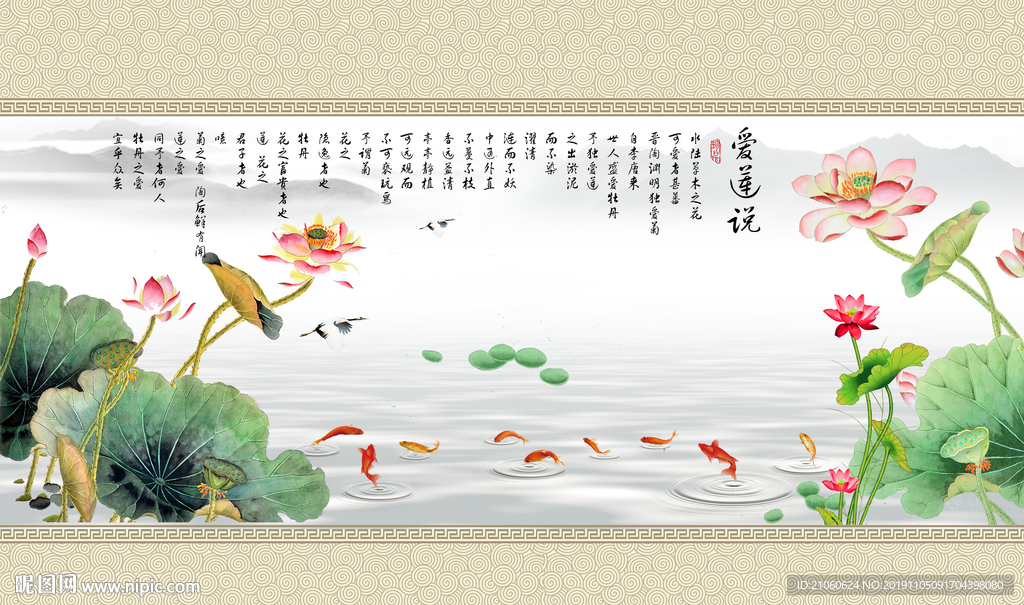 爱莲说
水陆草木之花
可爱者甚蕃
晋陶渊明独爱菊
自李唐来
世人盛爱牡丹
予独爱莲
之出淤泥
而不染
濯清
涟而不妖
中通外直
不蔓不枝
香远益清
亭亭静植
可远观而
不可亵玩焉
予谓菊
花之
隐逸者也
牡丹
花之富贵者也
莲 花之
君子者也
噫
菊之爱 陶后鲜有闻
莲之爱
同予者何人
牡丹之爱
宜乎众矣
昵图网 www.nipic.com
ID:21060624 NO:20191105091704398080